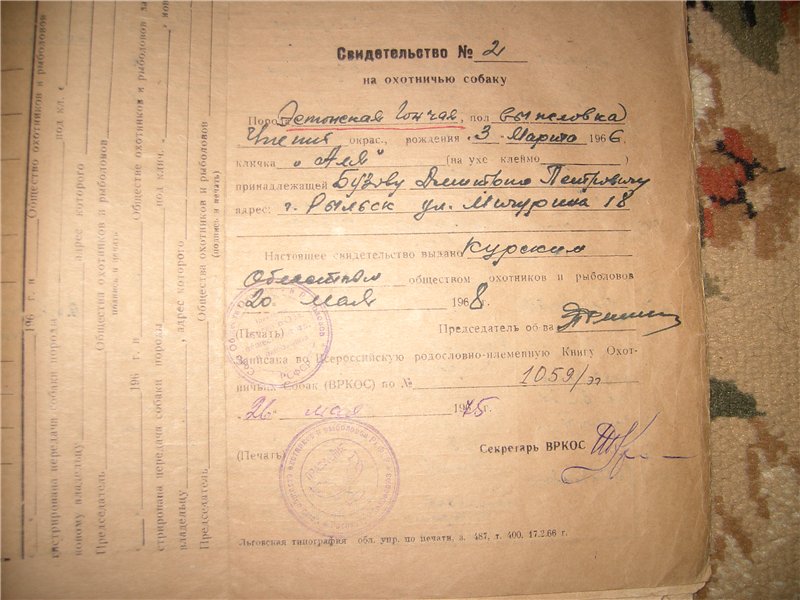 Свидетельство № 2
на охотничью собаку
Порода Эстонская Гончая, пол выжловка
окрас., рождения 3 Марта 1966
кличка „Аля" (на ухе клеймо)
принадлежащей Бузову Дмитрию Петровичу
адрес: г. Рыльск ул. Мичурина 18
Настоящее свидетельство выдано Курским
Областным обществом охотников и рыболовов
20 мая 1968г.
(Печать) Председатель об ва
Записана во Всероссийскую родословно-племенную Книгу Охот-
ничьих Собак (ВРКОС) по № 1059/эг
26 мая 1975г.
Секретарь ВРКОС
(Печать)
Льговская типография обл. упр. по печати, з. 487, т. 400. 17.2.66 г.
196 г. и Общество охотников и рыболовов
гистрирована передача собаки породы под кл.
новому владельцу адрес которого
Председатель Общества охотников и рыболовов
подпись и печать
196 г. и Общество охотников и рыболовов
стрирована передача собаки породы под клич.
владельцу, адрес которого
Председатель Общества охотников и рыболовов
(подпись и печать)